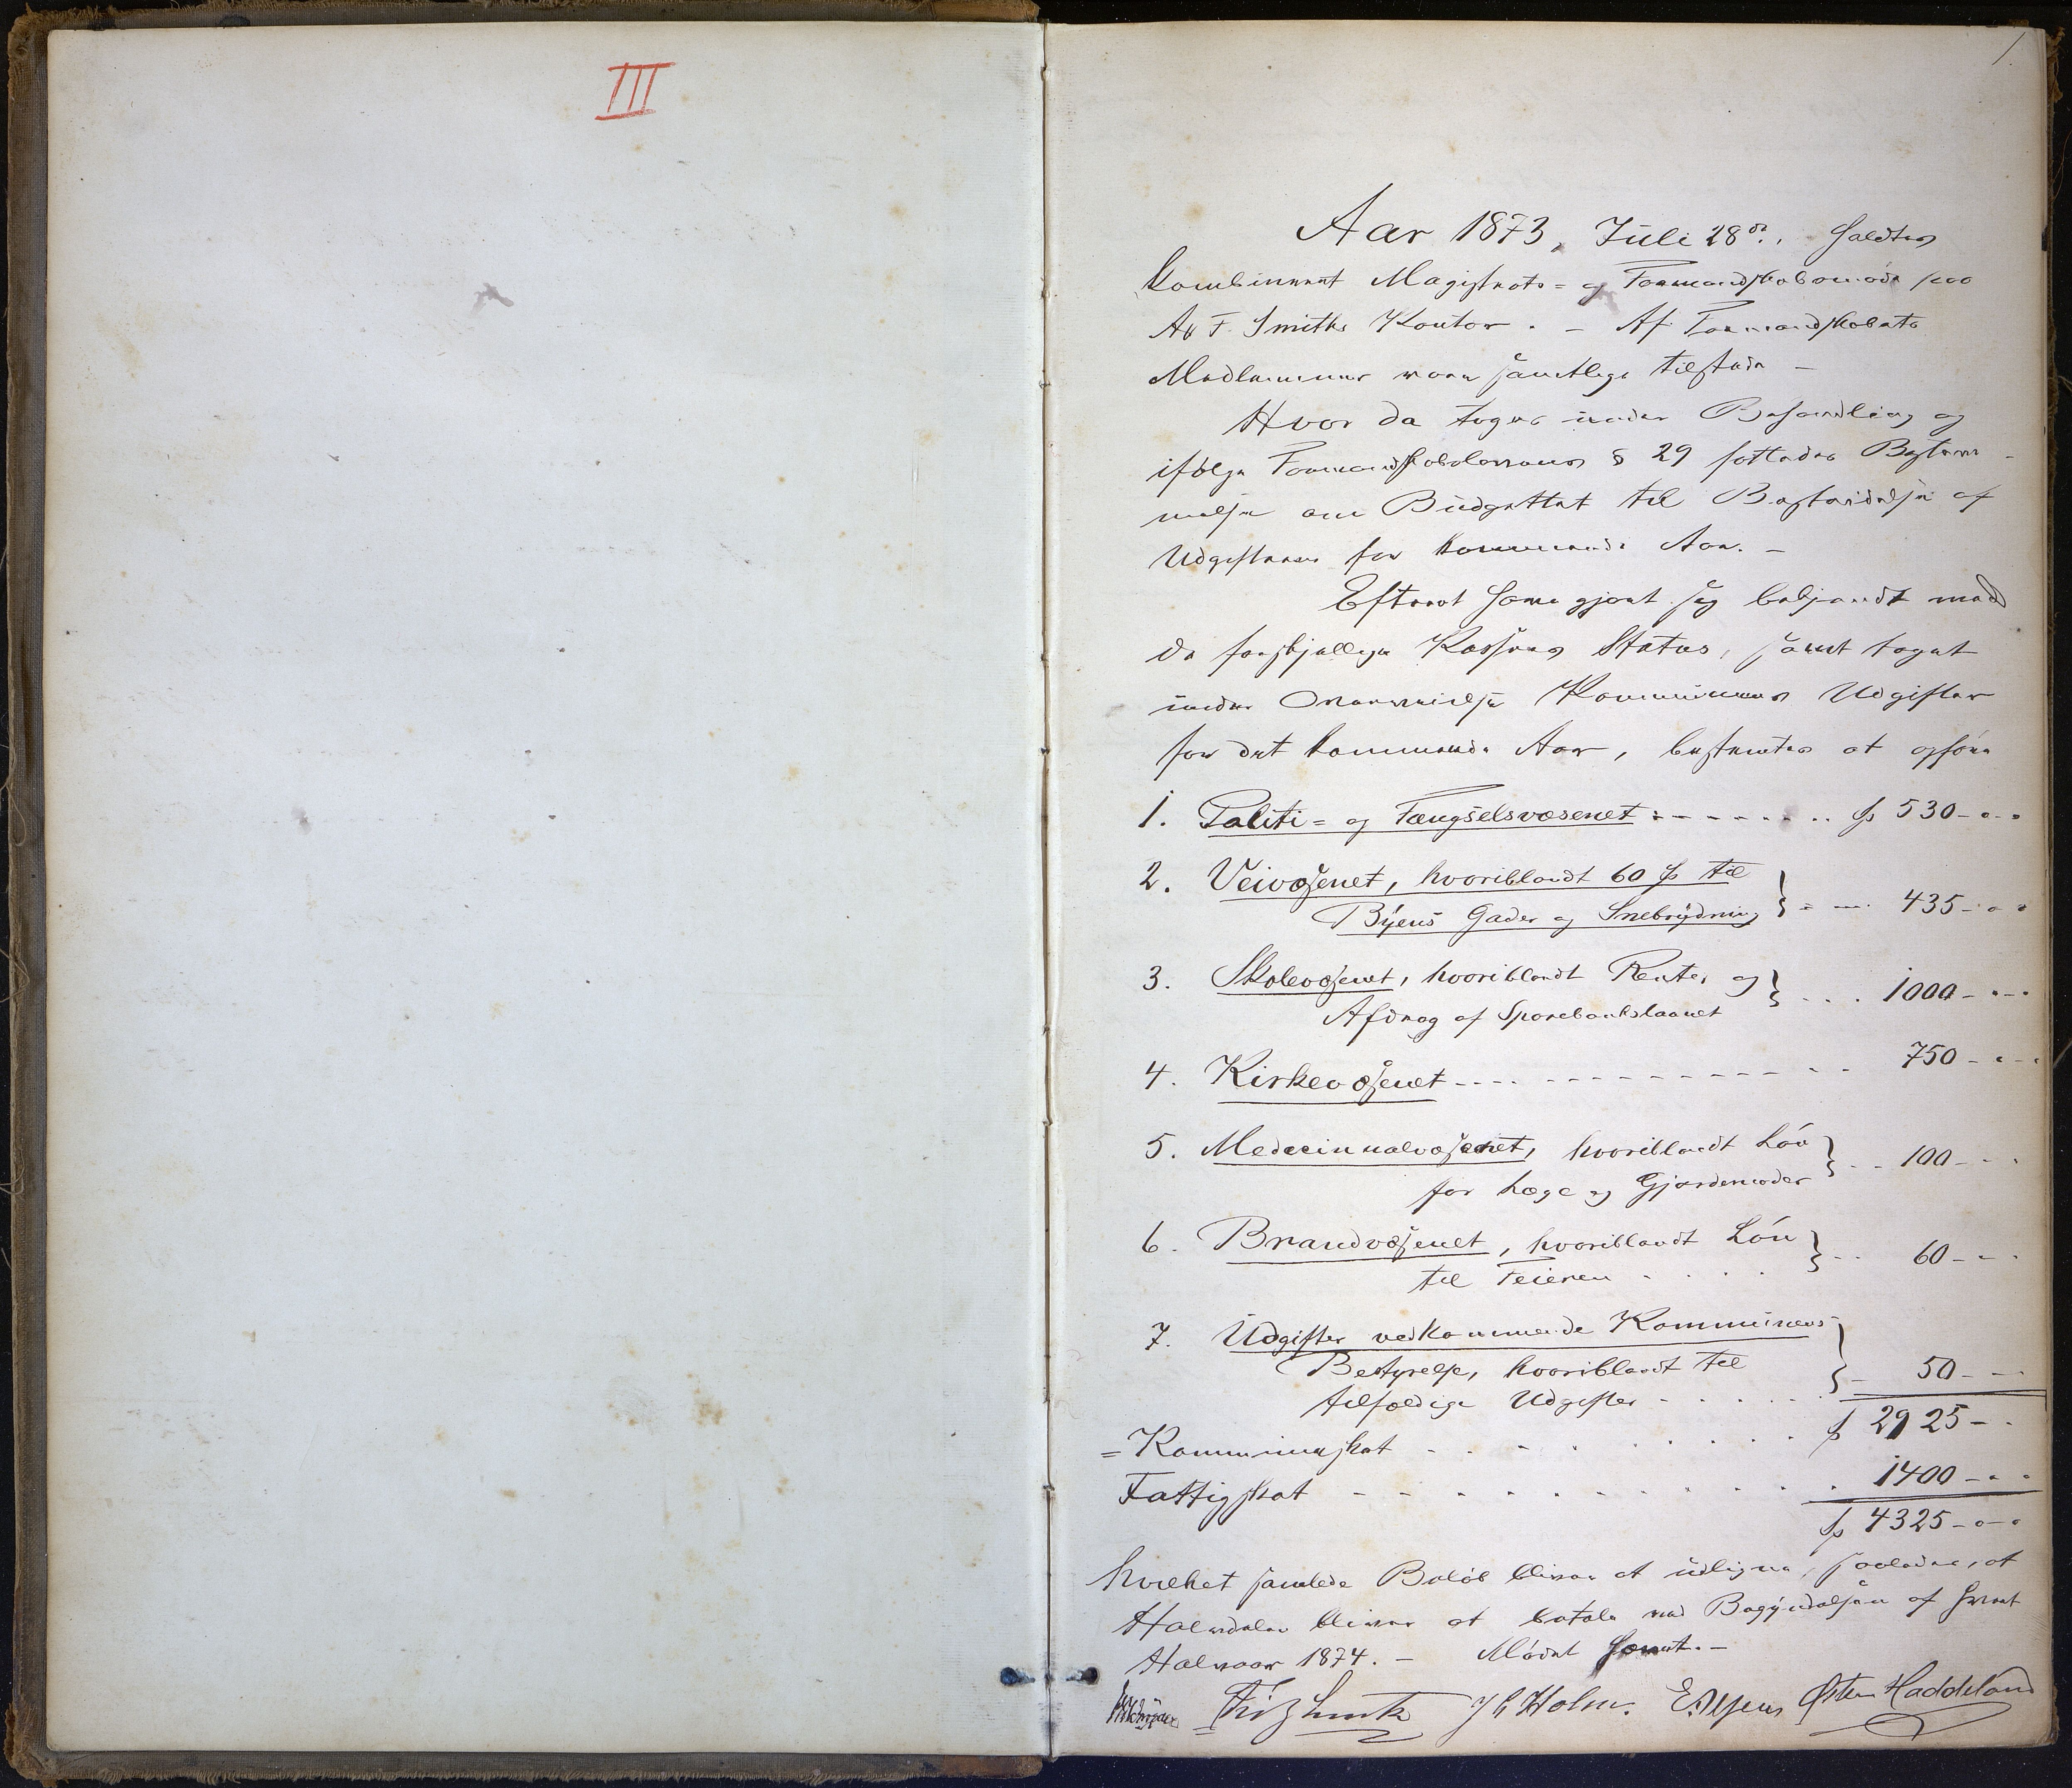 III
1.
Aar 1873, Juli 28de, holdtes
kombineret Magistrats= og Formandskabsmøde paa
F. Smiths Kontor. - Af Formandskabets
Medlemmer vare samtlige tilstede -
Hvor da toges under Behandling og
ifølge Formandskabslovens § 29 fattedes Bestem-
melse om Budgettet til Bestridelse af
Udgifterne for kommende Aar. -
Efterat have gjort sig bekjendt med
de forskjellige Kassers Status, samt taget
under Overveielse Kommunens Udgifter
for det kommende Aar, besluttes at opføre
1. Politi= og Fængselsvæsenet: - - - - - - - . . Sp 530 - " - "
2. Veivæsenet, hvoriblandt 60 Sp til
Byens Gader og Snebrydning } - - - . 435 - " - "
3. Skolevæsenet, hvoriblandt Renter og
Afdrag af Sparebankslaanet } . . . 1000 - " - "
4. Kirkevæsenet - - - - - - - - - - - - - - - 750 - " - "
5. Medecinnalvæsenet, hvoriblandt Løn
for Læge og Gjordemoder } . . - 100 - " - "
6. Brandvæsenet, hvoriblandt Løn
til Feieren . . . . . } - - 60 - " - "
7. Udgifter vedkommende Kommunens
Bestyrelse, hvoriblandt til
tilfældige Udgifter - - - - - } - 50 - - -
= Kommuneskat - - - - - - - - - - Sp 2925 - - "
Fattigskat - - - - - - - - - - - - - 1400 - " - "
Sp 4325 - " - "
hvilket samlede Beløb bliver at udligne, saaledes, at
Halvdelen bliver at betale ved Begyndelsen af hvert
Halvaar 1874. - Mødet hævet. -
J C Holm. Østen Haddeland